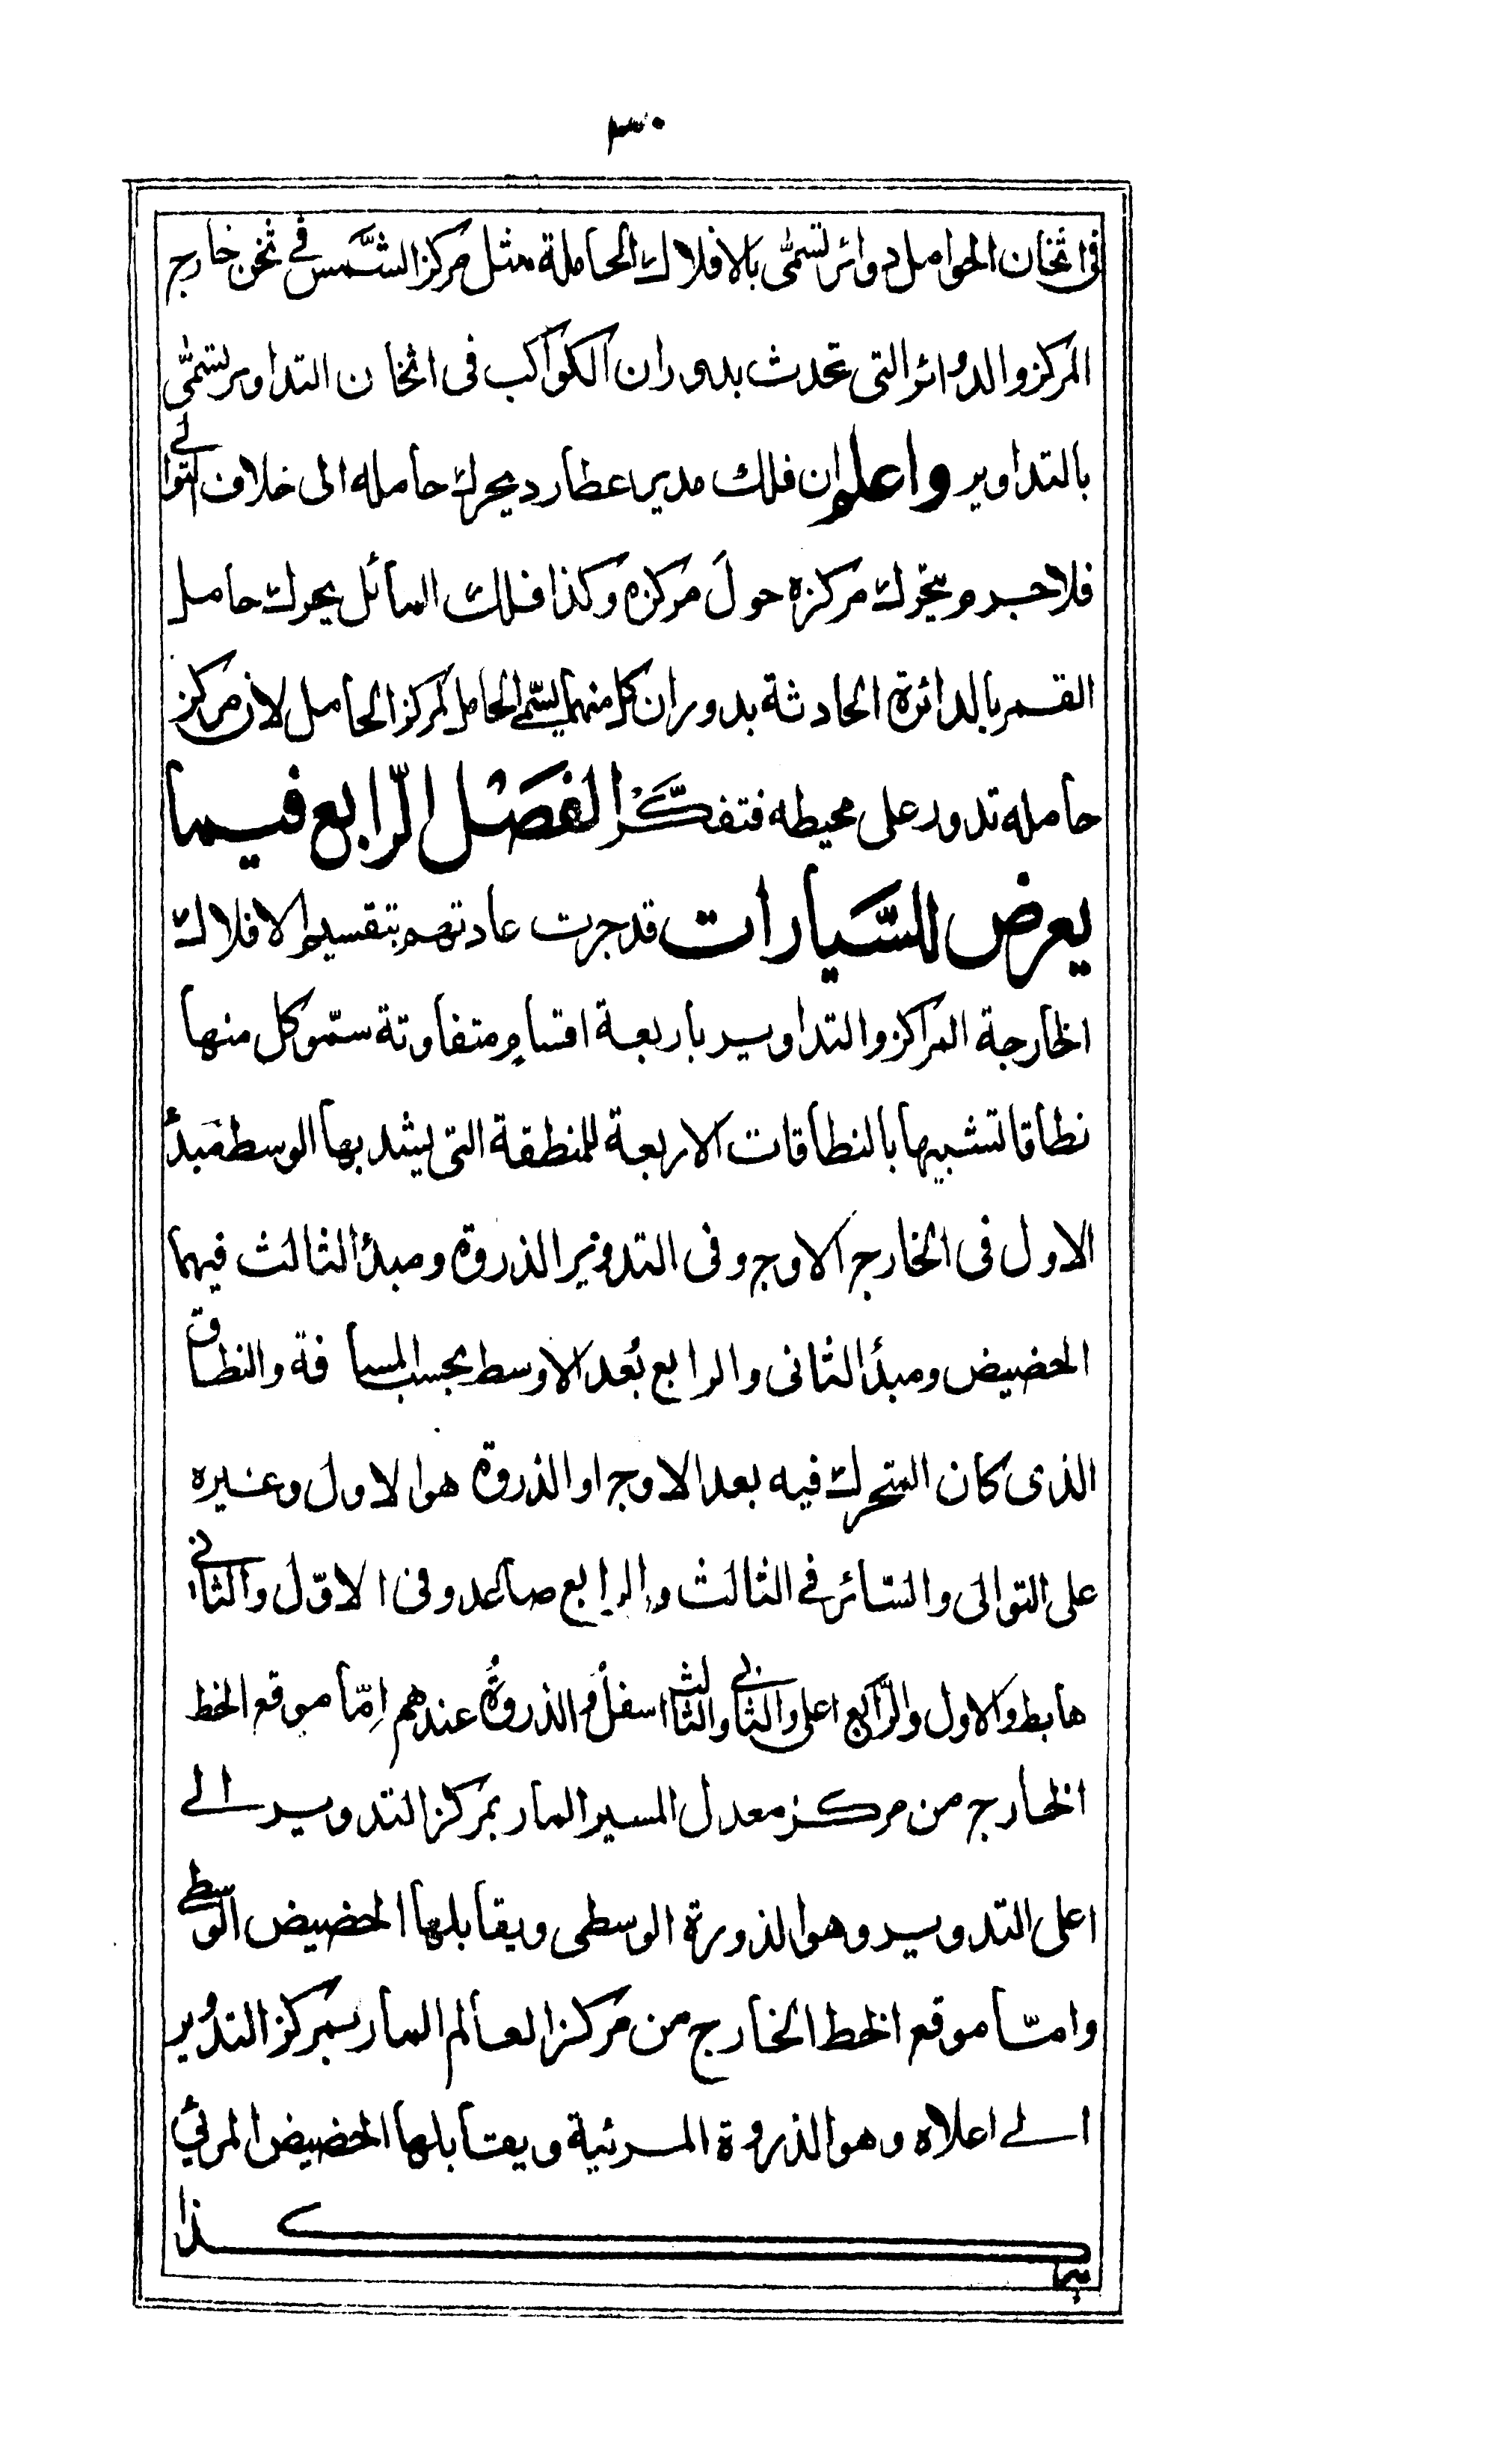 ٣٠
فى اثخان الحوامل دوائر تسمّى بالافلاك الحاملة مثل مركز الشَّمس فے ثخن خارج
المركز والدوائر التى تحدث بدوران الكواكب فى اثخان التداوير تسمّى
بالتداوير واعلم ان فلك مدير عطارد يحرك حامله الى خلاف التوالے
فلاجرم يتحرك مركزه حولَ مركزه وكذا فلك المائل يحرك حامل
القمر بالدائرة الحادثة بدوران كل منهما يسمّے الحامل لمركز الحامل لان مركز
حامله تدور على محيطه فتفكَّرْ الفصْل الرّابع فيما
يعرض للسَّيارات قد جرت عادتهم بتقسيم الافلاك
الخارجة المراكز والتداوير باربعة اقسامٍ متفاوتة سمّو كل منها
نطاقا تشبيها بالنطاقات الاربعة للمنطقة التى يشد بها الوسط فمبدأ
الاول فى الخارج الاوج وفى التدوير الذروة ومبدأ الثالث فيهما
الحضيض ومبدأ الثانى والرابع بُعد الاوسط بحسب المسافة والنطاق
الذى كان المتحرك فيه بعد الاوج او الذروة هو الاول وغيره
على التوالى والسّائر فے الثالث والرابع صاعد وفى الاوّل والثانے
هابط والاول والرّابع اعلى والثانے والثالث اسفلُ والذروةُ عندهم اِمّا موقع الخط
الخارج من مركز معدل المسير المار بمركز التدوير الے
اعلى التدوير وهو الذورة الوسطى ويقابلها الحضيض الوسطے
وامّا موقع الخط الخارج من مركز العالم المار بمركز التدوير
الے اعلاه وهو الذروة المرئية ويقابلها الحضيض المرئي
هكذا